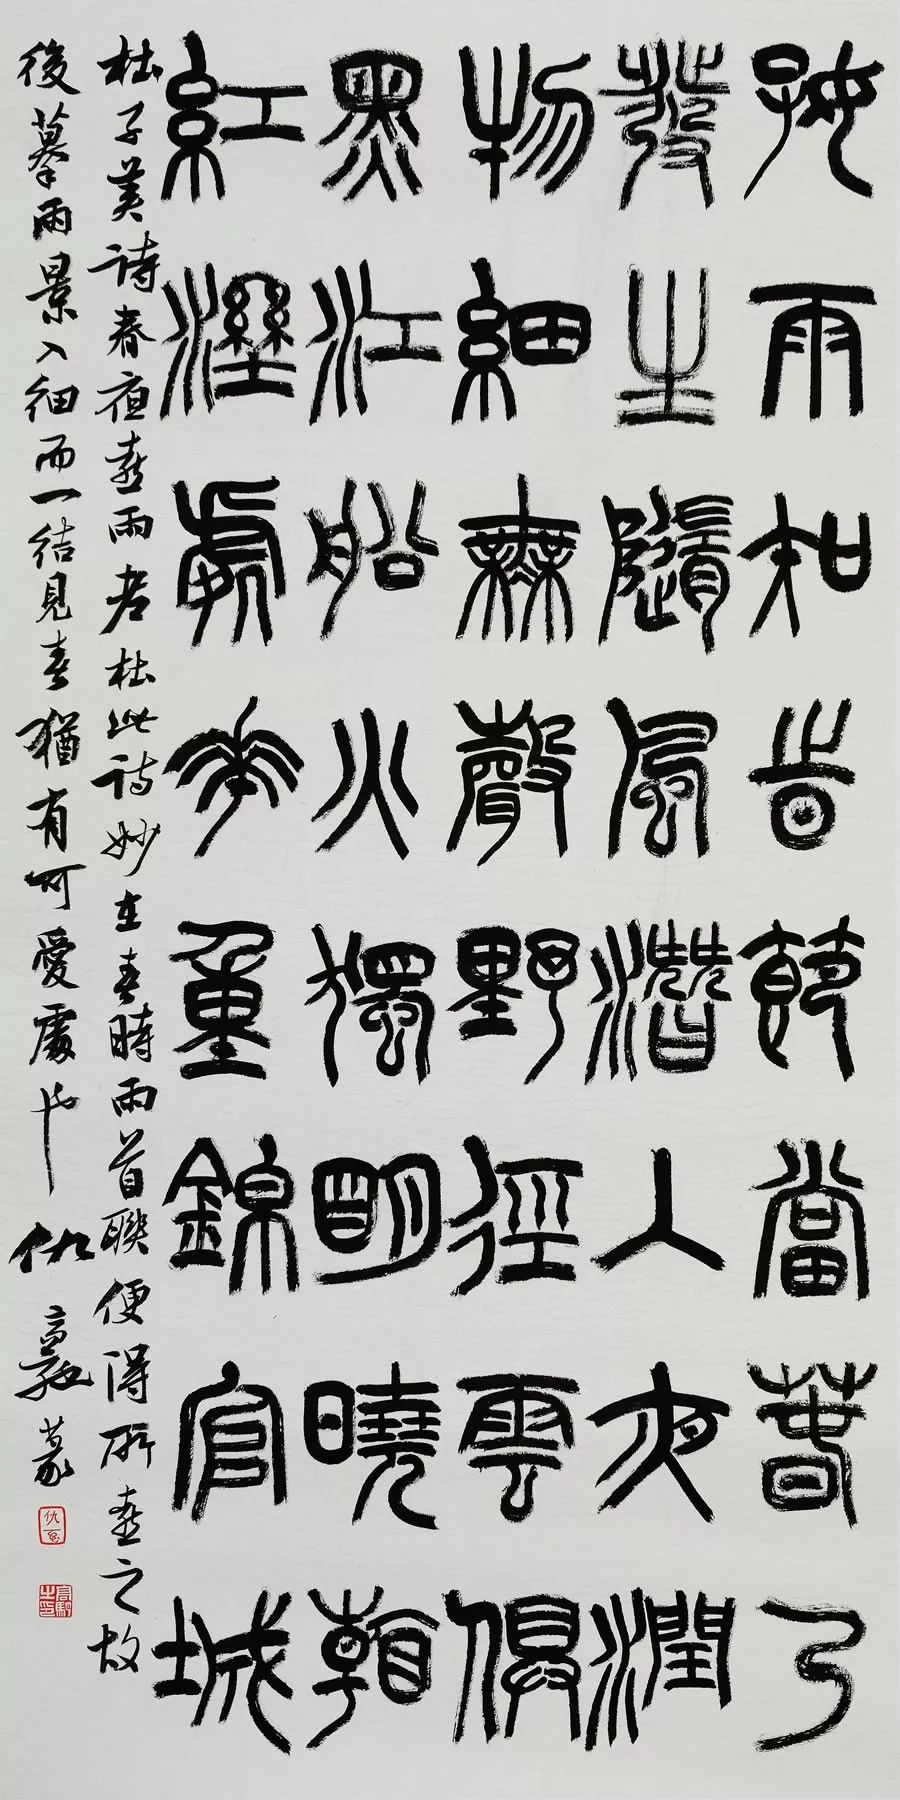 好雨知旹節當春乃
發生隨風潛入夜潤
物細無聲野徑雲俱
黑江船火獨明曉看
紅溼處花重錦官城
杜子美詩春夜喜雨老杜此詩妙在春時雨首聯便得所喜之故
後摹雨景入細而一結見春猶有可愛處也 仇高馳篆